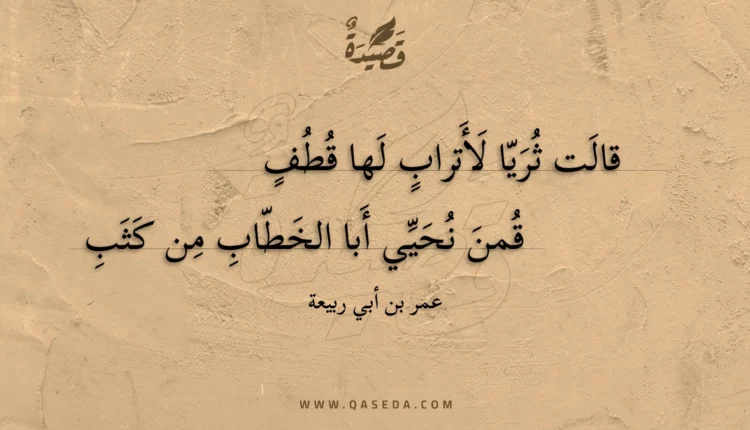 قَصِيْدَةٌ
قالَت ثُرَيّا لَأَترابٍ لَها قُطُفٍ
قُمنَ نُحَيِّي أَبا الخَطّابِ مِن كَثَبِ
عمر بن أبي ربيعة
WWW.QASEDA.COM